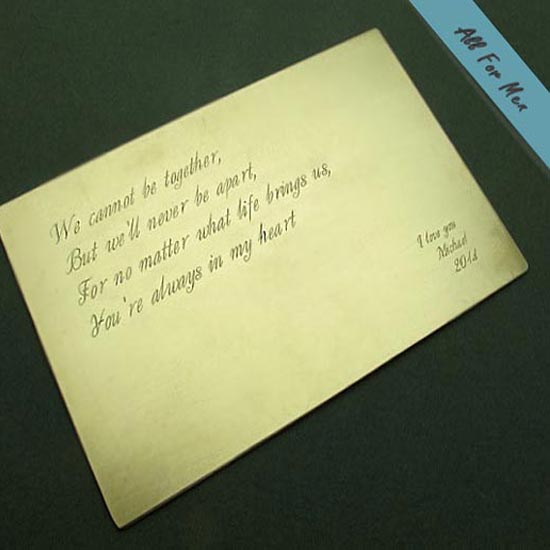 We cannot be together,
But we'll never be apart,
For no matter what life brings us,
You're always in my heart
I love you
Michael
2014
All For Men